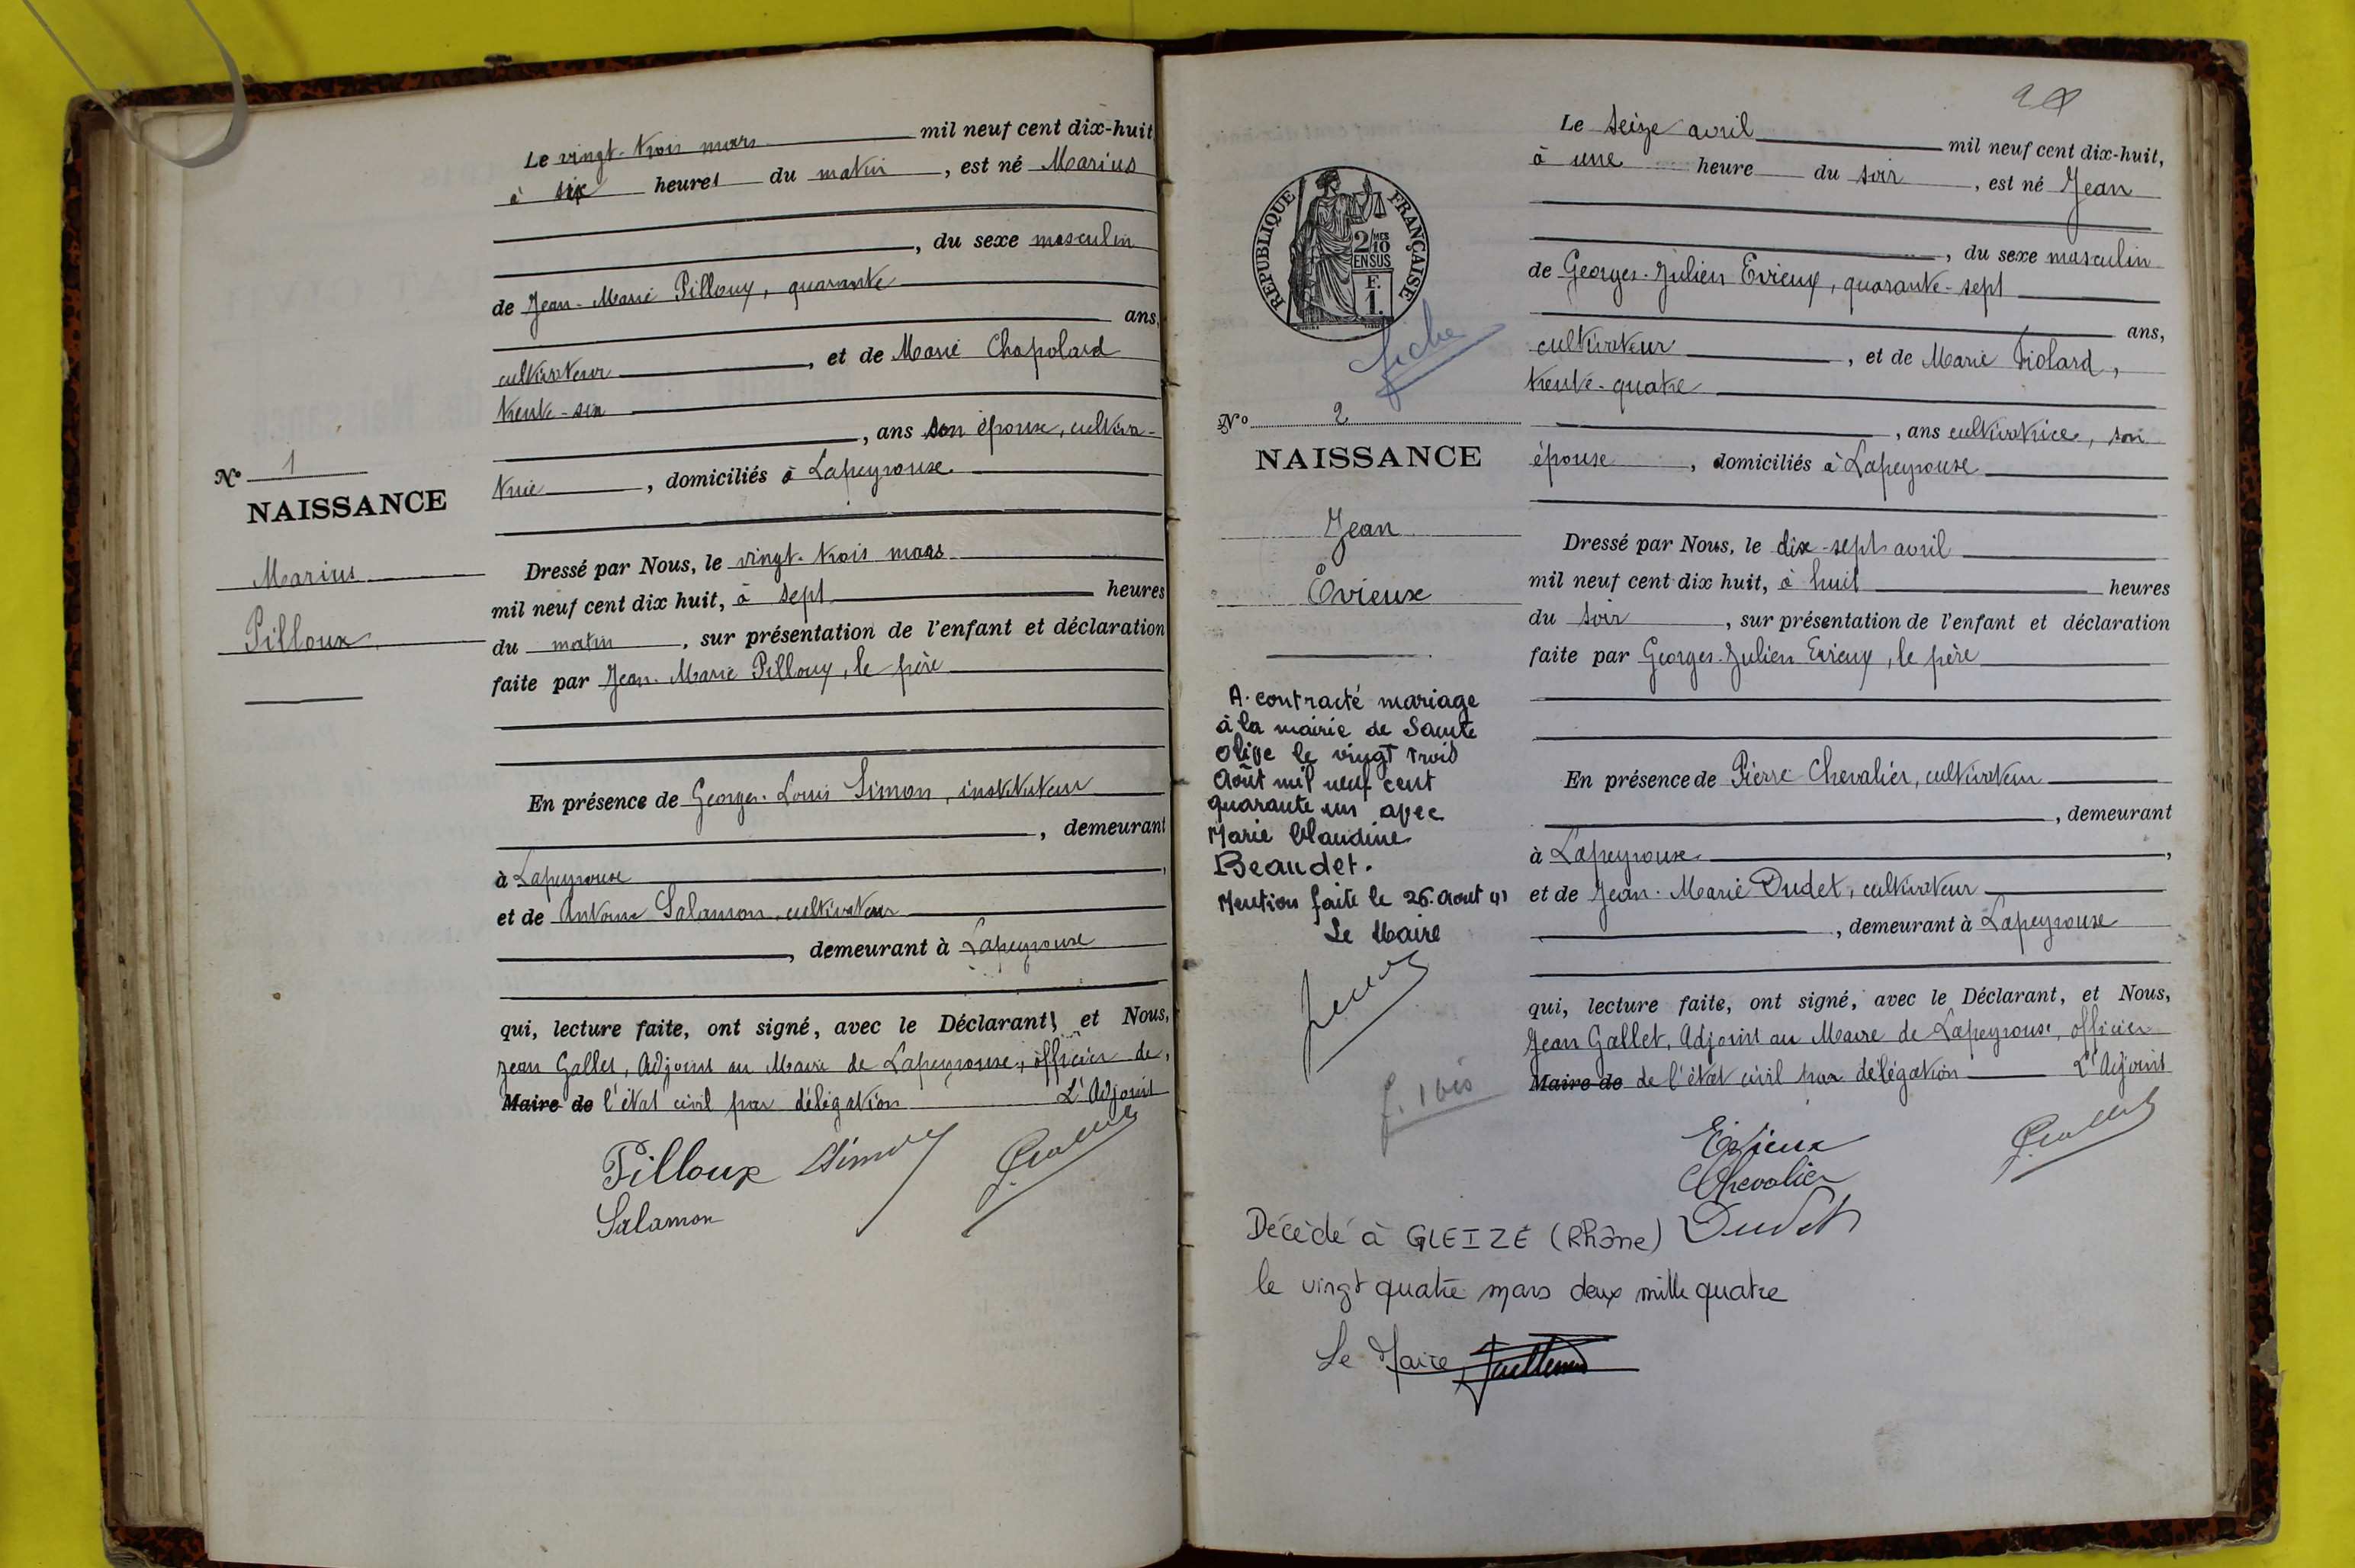 Le vingt-trois mars mil neuf cent dix-huit
à six heures du matin, est né Marius
, du sexe masculin
de Jean-Marie Pilloux, quarante
ans,
cultivateur, et de Marie Chapolard
trente-six
, ans son épouse, cultiva-
trice, domiciliés à Lapeyrouse
N° 1
NAISSANCE
Marius
Pilloux
Dressé par Nous, le vingt-trois mars
mil neuf cent dix huit, à sept heures
du matin, sur présentation de l'enfant et déclaration
faite par Jean-Marie Pilloux, le père
En présence de Georges-Louis Simon, instituteur
, demeurant
à Lapeyrouse,
et de Antoine Salamon, cultivateur
, demeurant à Lapeyrouse
qui, lecture faite, ont signé, avec le Déclarant, et Nous,
Jean Gallet, Adjoint au Maire de Lapeyrouse, officier de
Maire de l'état civil par délégation L'Adjoint
Pilloux Simon J. Gallet
Salamon
Le seize avril mil neuf cent dix-huit,
à une heure du soir, est né Jean
, du sexe masculin
de Georges-Julien Evieux, quarante-sept
ans,
cultivateur, et de Marie Violard,
trente-quatre
, ans cultivatrice, son
épouse, domiciliés à Lapeyrouse
RÉPUBLIQUE FRANÇAISE
2/MES
10
EN SUS
F.
1.
fiche
N° 2
NAISSANCE
Jean
Évieux
A contracté mariage
à la mairie de Sainte
Olive le vingt trois
Août mil neuf cent
quarante un avec
Marie Claudine
Beaudet.
Mention faite le 26 Août 41
Le Maire
f. 1 bis
Dressé par Nous, le dix-sept avril
mil neuf cent dix huit, à huit heures
du soir, sur présentation de l'enfant et déclaration
faite par Georges-Julien Evieux, le père
En présence de Pierre Chevalier, cultivateur
, demeurant
à Lapeyrouse,
et de Jean-Marie Dudet, cultivateur
, demeurant à Lapeyrouse
qui, lecture faite, ont signé, avec le Déclarant, et Nous,
Jean Gallet, Adjoint au Maire de Lapeyrouse, officier
Maire de de l'état civil par délégation L'Adjoint
Evieux J. Gallet
Chevalier
Dudet
Décédé à GLEIZÉ (Rhône)
le vingt quatre mars deux mille quatre
Le Maire